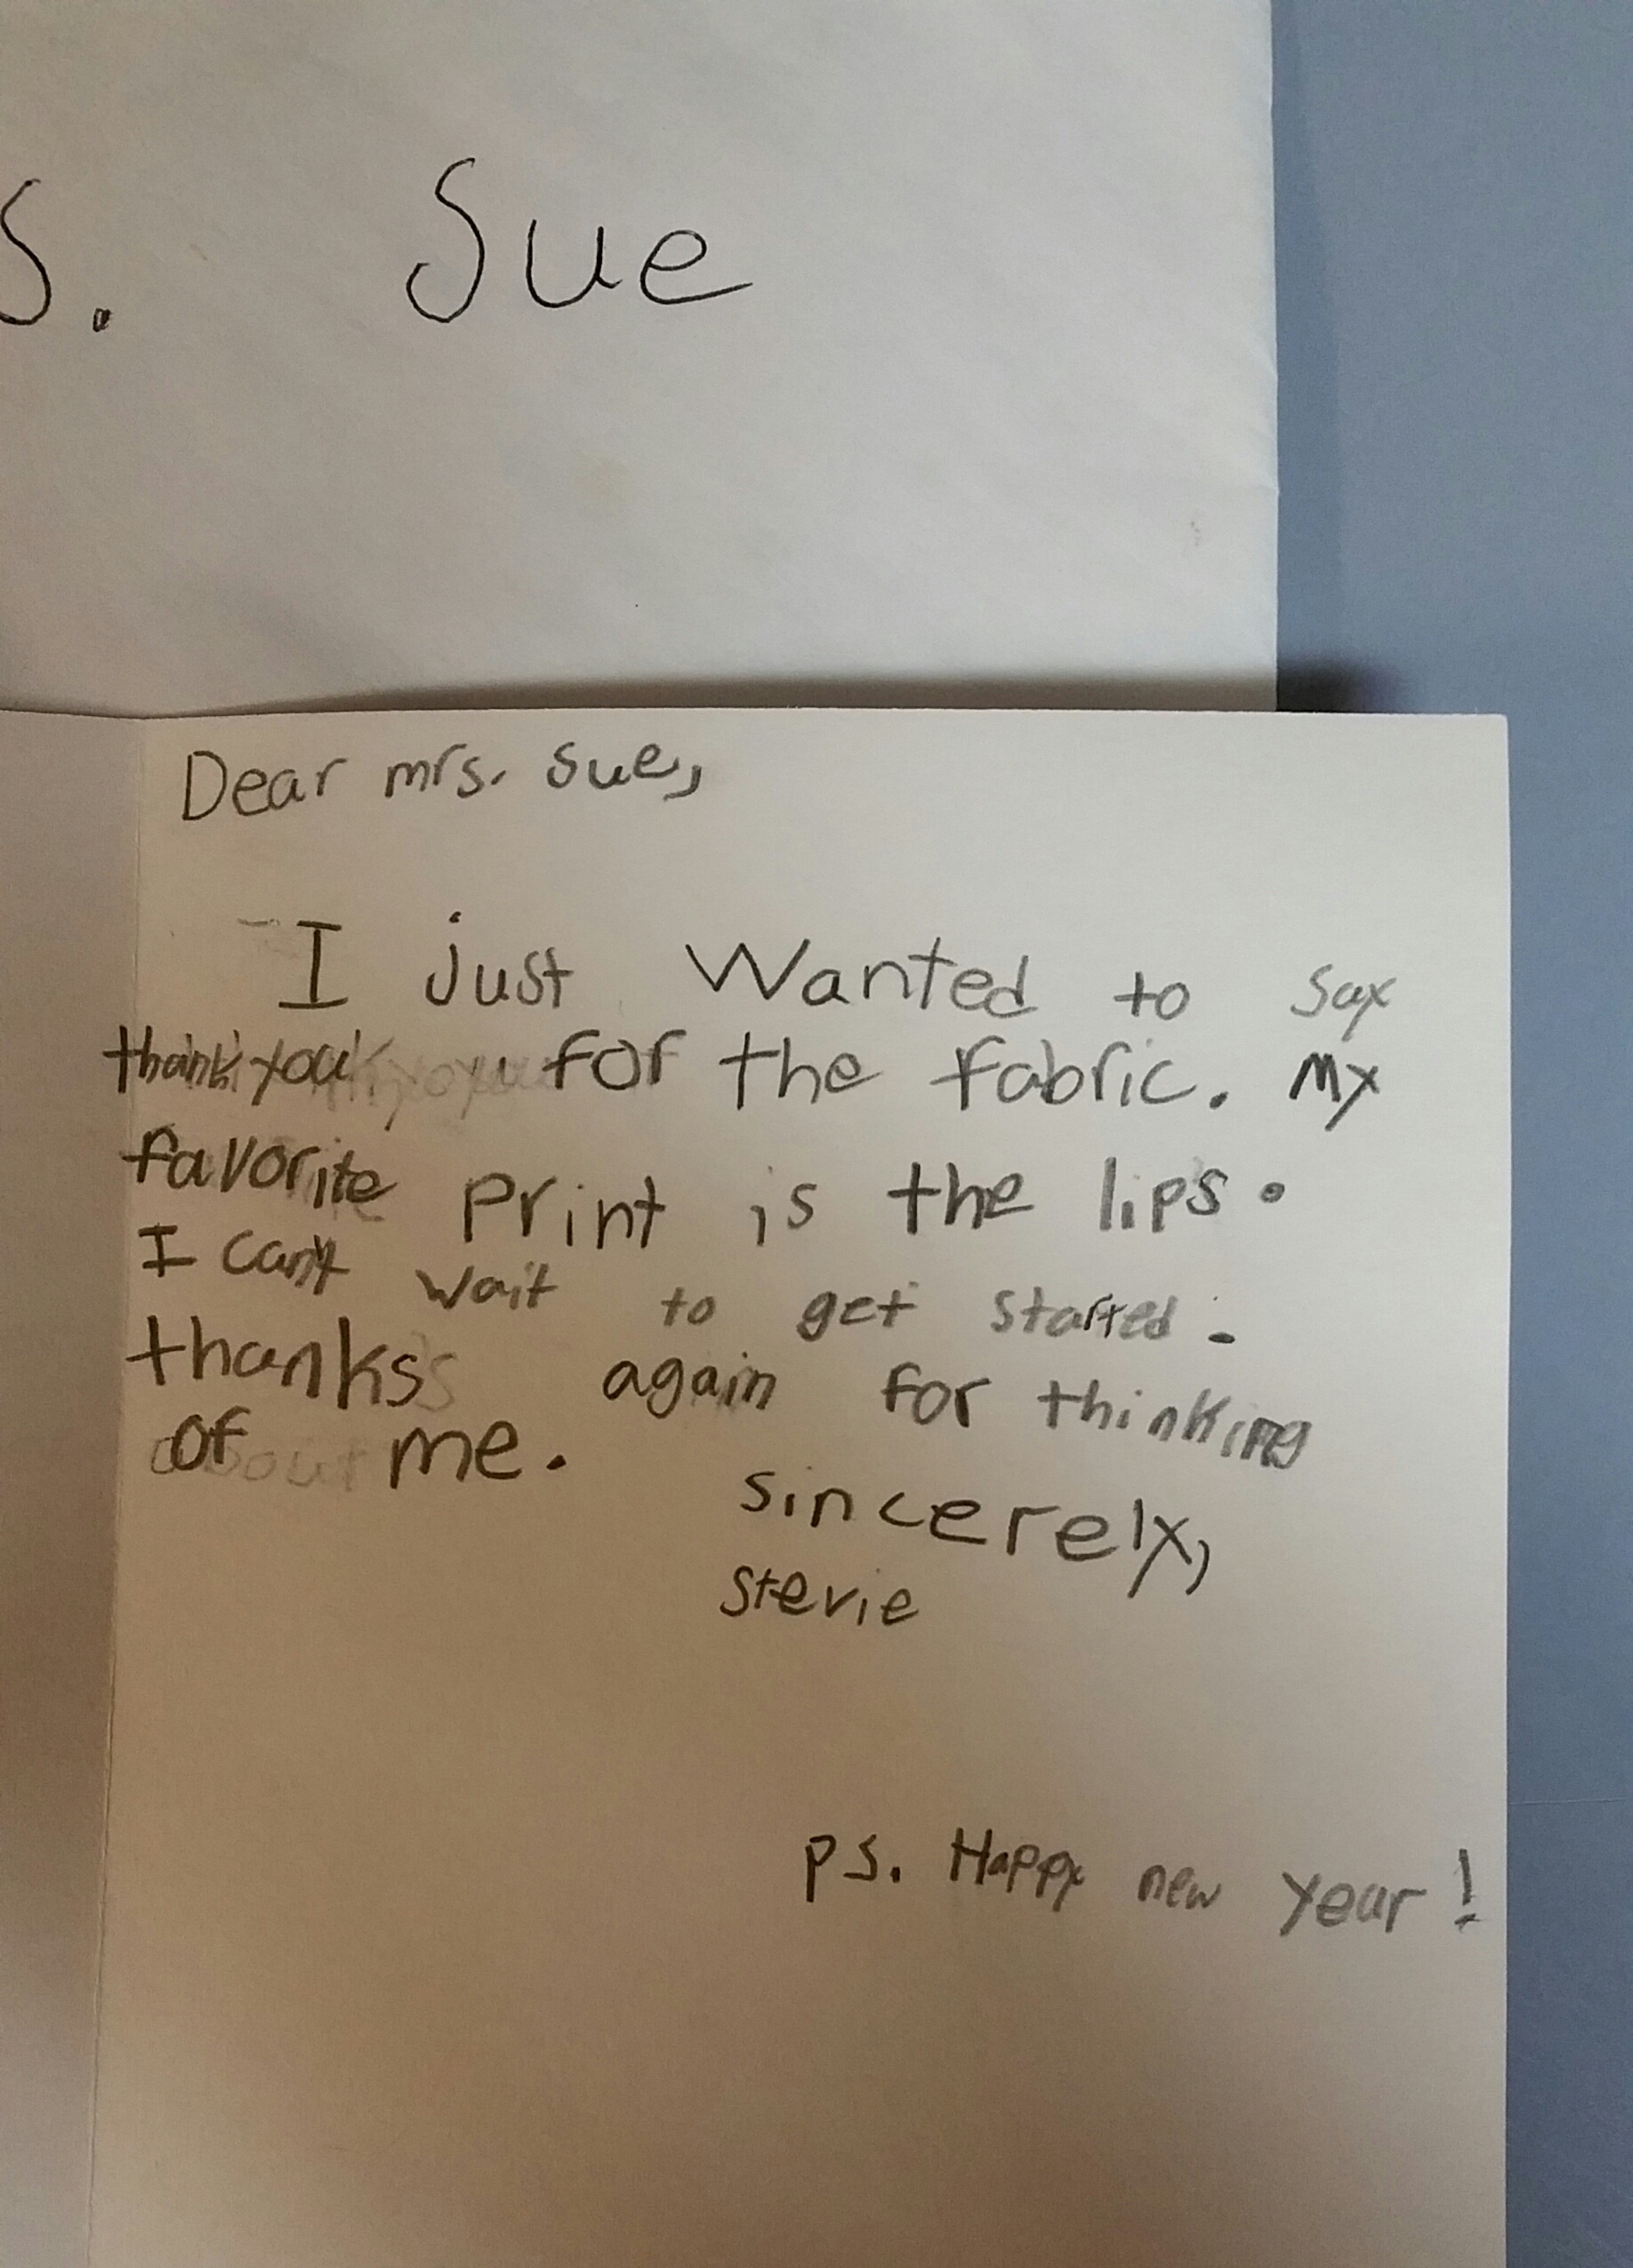 s. Sue
Dear mrs. Sue,
I just Wanted to say
thank you for the fabric. My
favorite print is the lips.
I can't wait to get started.
thanks again for thinking
of me.
sincerely,
stevie
ps. Happy new year!